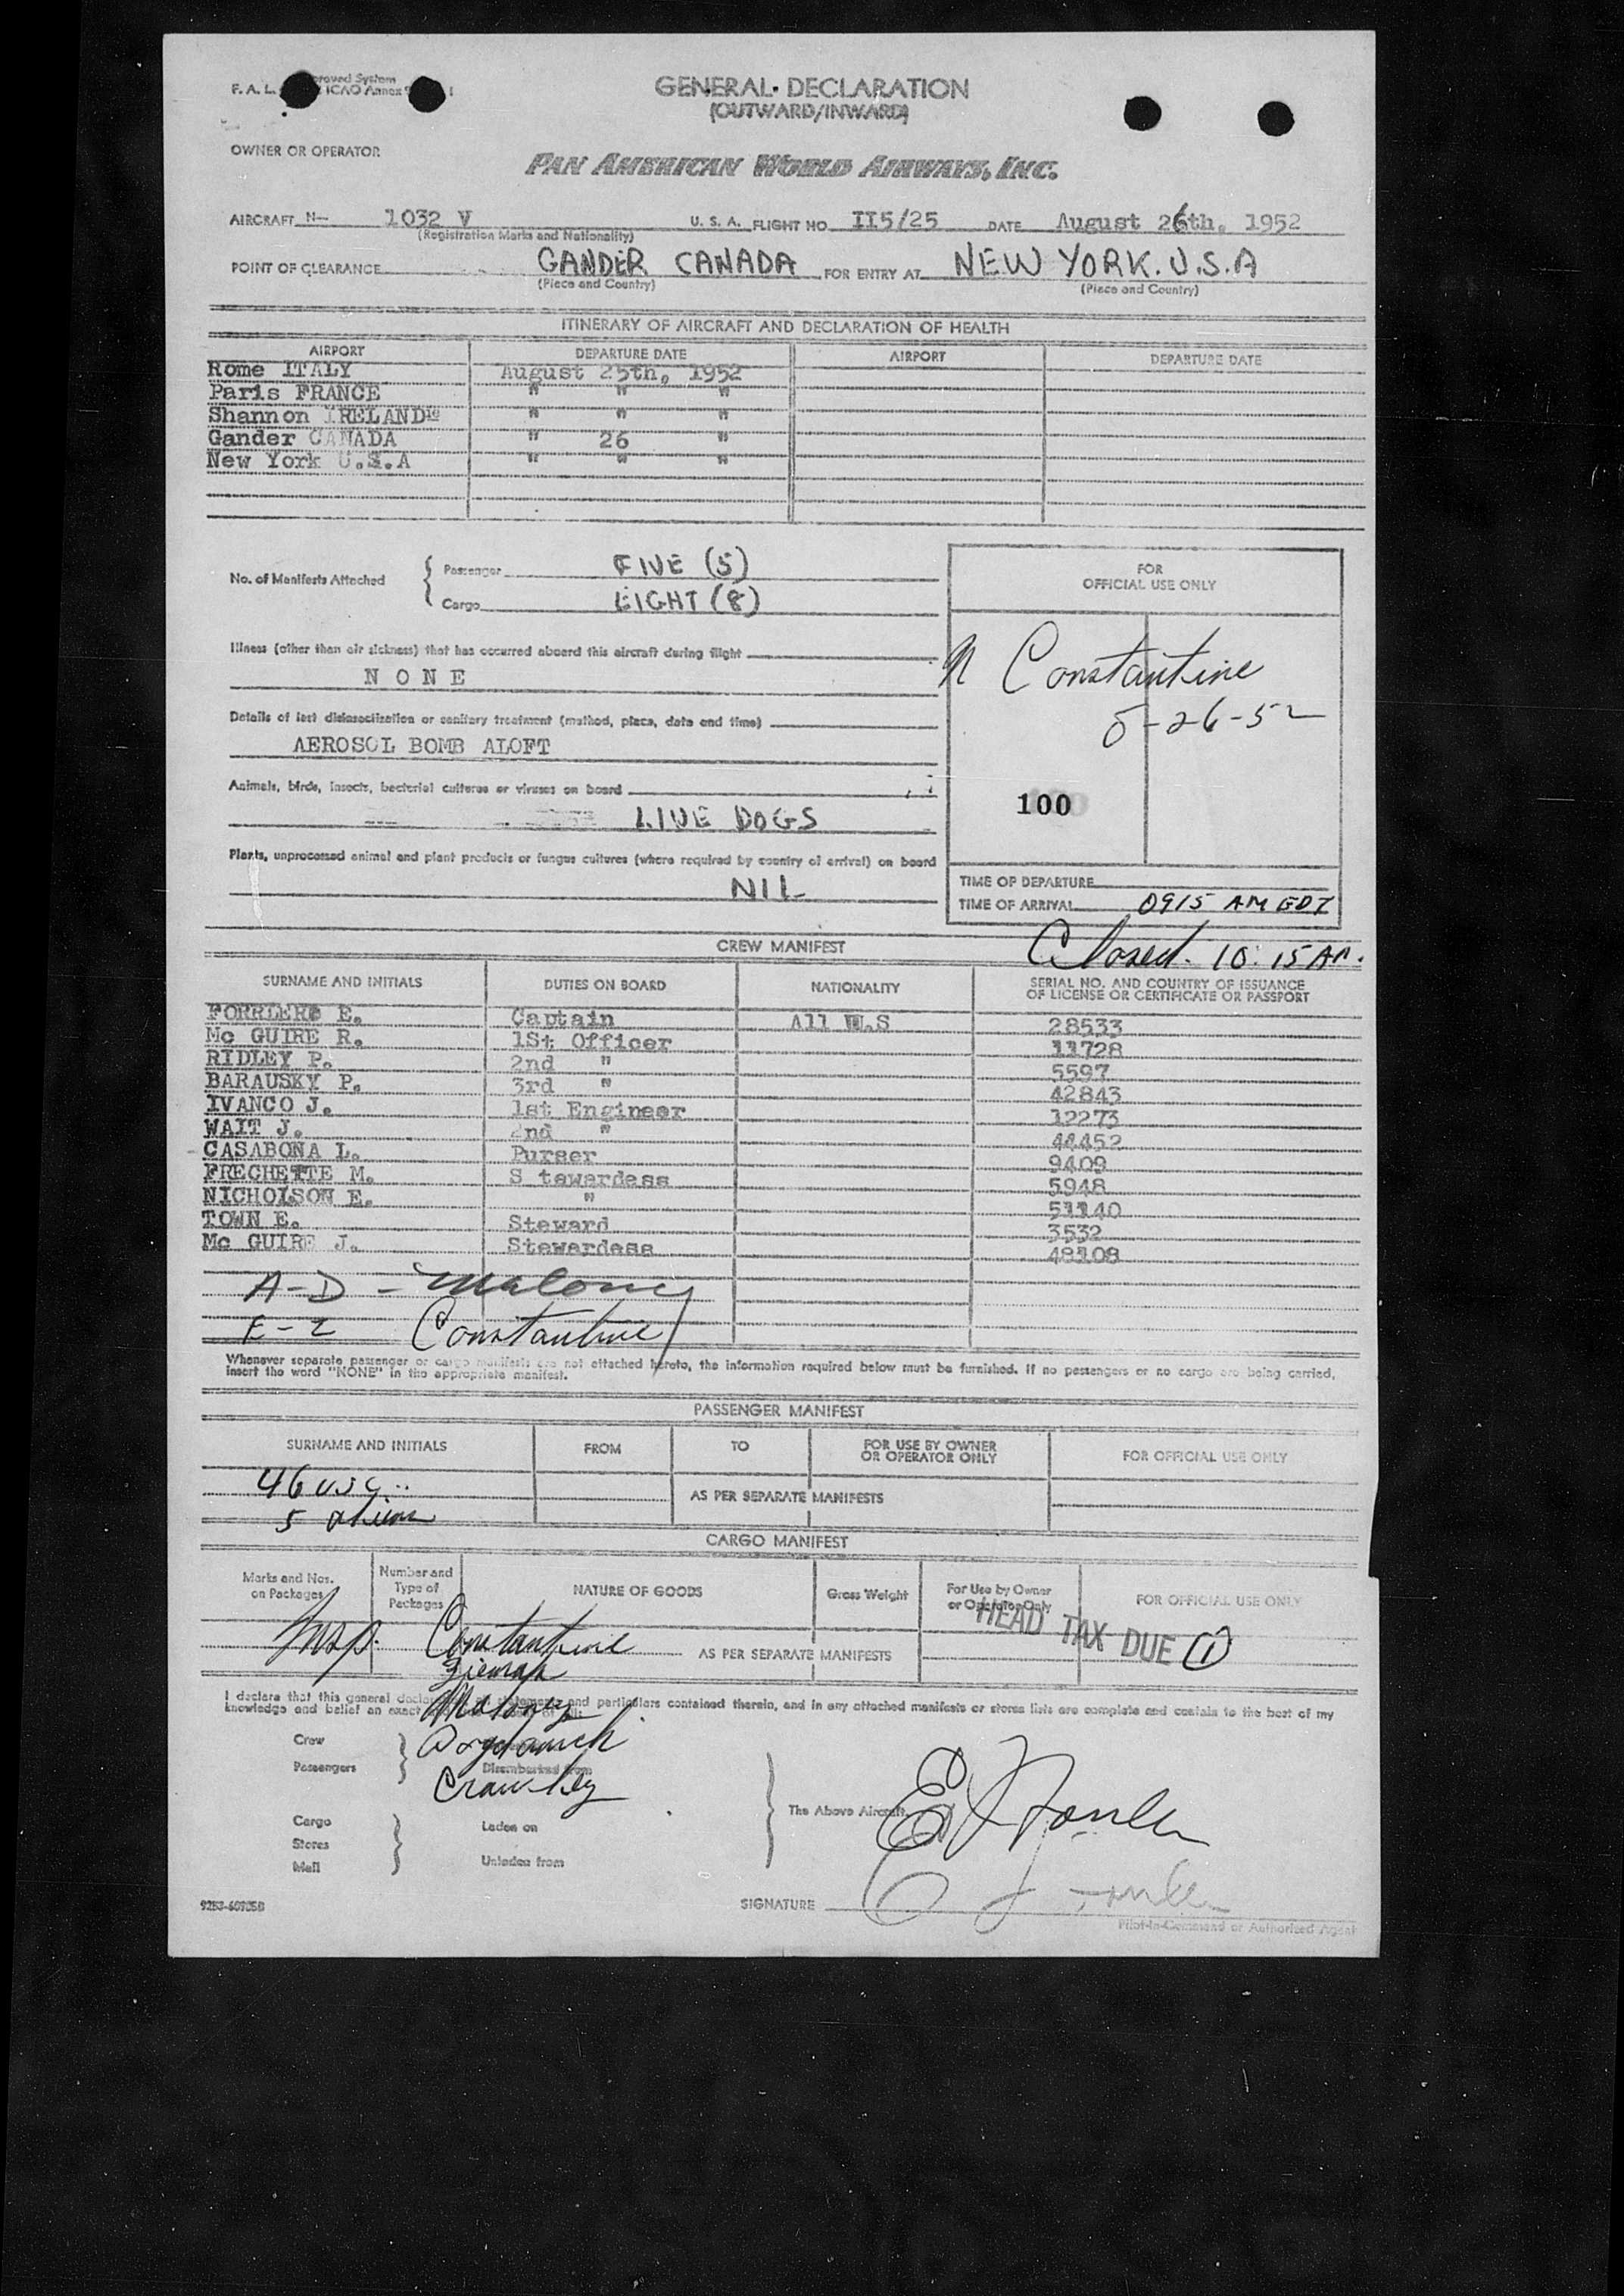 GENERAL DECLARATION
(OUTWARD/INWARD)
F. A. L. proved System
ICAO Annex
OWNER OR OPERATOR
PAN AMERICAN WORLD AIRWAYS, INC.
AIRCRAFT N- 1032 V U. S. A. FLIGHT NO II5/25 DATE August 26th, 1952
(Registration Marks and Nationality)
POINT OF CLEARANCE GANDER CANADA FOR ENTRY AT NEW YORK. U.S.A
(Place and Country) (Place and Country)
ITINERARY OF AIRCRAFT AND DECLARATION OF HEALTH
AIRPORT DEPARTURE DATE AIRPORT DEPARTURE DATE
Rome ITALY August 25th, 1952
Paris FRANCE " " "
Shannon IRELAND " " "
Gander CANADA " 26 "
New York U.S.A " " "
No. of Manifests Attached
Passenger FIVE (5)
Cargo EIGHT (8)
FOR
OFFICIAL USE ONLY
Illness (other than air sickness) that has occurred aboard this aircraft during flight
NONE
N Constantine
8-26-52
Details of last disinsectization or sanitary treatment (method, place, date and time)
AEROSOL BOMB ALOFT
Animals, birds, insects, bacterial cultures or viruses on board
LIVE DOGS
100
Plants, unprocessed animal and plant products or fungus cultures (where required by country of arrival) on board
NIL
TIME OF DEPARTURE
TIME OF ARRIVAL 0915 AM EDT
Closed. 10:15 AM.
CREW MANIFEST
SURNAME AND INITIALS DUTIES ON BOARD NATIONALITY SERIAL NO. AND COUNTRY OF ISSUANCE
OF LICENSE OR CERTIFICATE OR PASSPORT
E. Captain All U.S 28533
Mc GUIRE R. 1St Officer 11728
RIDLEY P. 2nd " 5597
BARAUSKY P. 3rd " 42843
IVANCO J. 1st Engineer 12273
WAIT J. 2nd " 44452
CASABONA L. Purser 9409
FRECHETTE M. S tewardess 5948
NICHOLSON E. " 51140
TOWN E. Steward 3532
Mc GUIRE J. Stewardess 48108
A-D - Maloney
E-Z Constantine
Whenever separate passenger or cargo manifests are not attached hereto, the information required below must be furnished. If no passengers or no cargo are being carried,
insert the word "NONE" in the appropriate manifest.
PASSENGER MANIFEST
SURNAME AND INITIALS FROM TO FOR USE BY OWNER
OR OPERATOR ONLY FOR OFFICIAL USE ONLY
46 USC
5 aliens
AS PER SEPARATE MANIFESTS
CARGO MANIFEST
Marks and Nos.
on Packages
Number and
Type of
Packages
NATURE OF GOODS Gross Weight For Use by Owner
or Operator Only FOR OFFICIAL USE ONLY
HEAD TAX DUE (1)
Insp. Constantine
AS PER SEPARATE MANIFESTS
Maloney
I declare that this general declaration and particulars contained therein, and in any attached manifests or stores lists are complete and contain to the best of my
knowledge and belief an exact
Crew
Passengers
Disembarked from
Crawley
Cargo
Stores
Mail
Laden on
Unladen from
The Above Aircraft.
9253-60705B
SIGNATURE
Pilot-in-Command or Authorized Agent